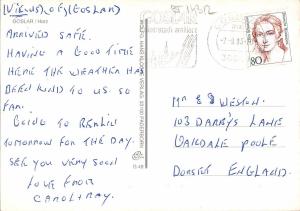 (VIEWS) OF (GOSLAR)
GOSLAR / Harz
ARRIVED SAFE.
HAVING A GOOD TIME
HERE THE WEATHER HAS
BEEN KIND TO US SO
FAR.
GOING TO BERLIN
TOMORROW FOR THE DAY.
SEE YOU VERY SOON
LOVE FROM
CAROL + RAY.
GOSLAR
80
MR & S WESTON.
103 DARBYS LANE
OAKDALE POOLE
DORSET ENGLAND.